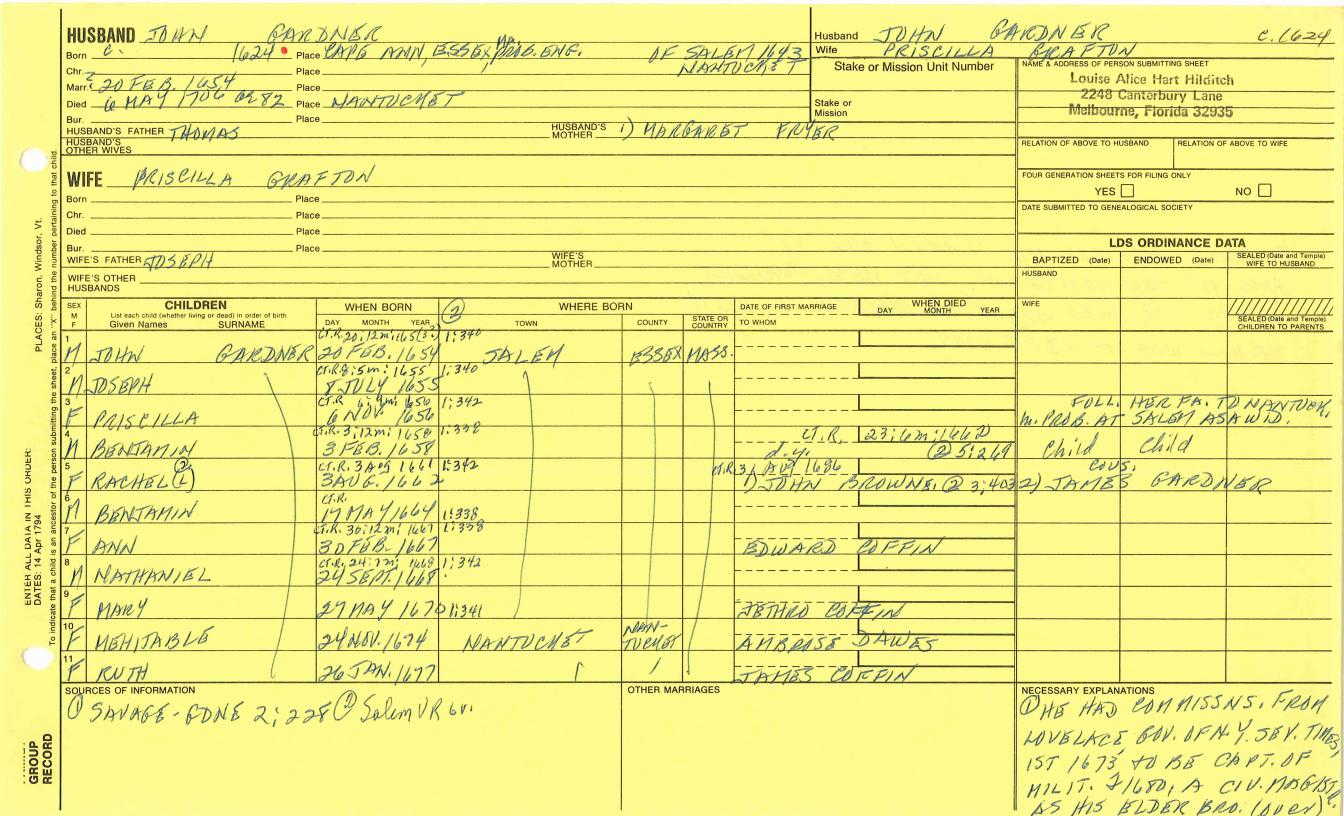 HUSBAND JOHN GARDNER
Born c. 1624 Place CAPE ANN, ESSEX, MA. PROB. ENG. OF SALEM 1643
NANTUCKET
Chr. Place
Marr. ? 20 FEB. 1654 Place
Died 6 MAY 1706 OR 82 Place NANTUCKET
Bur. Place
HUSBAND'S FATHER THOMAS HUSBAND'S MOTHER 1) MARGARET FRYER
HUSBAND'S OTHER WIVES
Husband JOHN GARDNER c. 1624
Wife PRISCILLA GRAFTON
Stake or Mission Unit Number
Stake or Mission
NAME & ADDRESS OF PERSON SUBMITTING SHEET
Louise Alice Hart Hilditch
2248 Canterbury Lane
Melbourne, Florida 32935
RELATION OF ABOVE TO HUSBAND RELATION OF ABOVE TO WIFE
FOUR GENERATION SHEETS FOR FILING ONLY
YES NO
DATE SUBMITTED TO GENEALOGICAL SOCIETY
WIFE PRISCILLA GRAFTON
Born Place
Chr. Place
Died Place
Bur. Place
WIFE'S FATHER JOSEPH WIFE'S MOTHER
WIFE'S OTHER HUSBANDS
LDS ORDINANCE DATA
BAPTIZED (Date) ENDOWED (Date) SEALED (Date and Temple) WIFE TO HUSBAND
HUSBAND
WIFE
SEALED (Date and Temple) CHILDREN TO PARENTS
SEX M F
CHILDREN
List each child (whether living or dead) in order of birth
Given Names SURNAME
WHEN BORN
DAY MONTH YEAR
② WHERE BORN
TOWN COUNTY STATE OR COUNTRY
DATE OF FIRST MARRIAGE
TO WHOM
WHEN DIED
DAY MONTH YEAR
1 CT.R. 20:12m:165(3?) 1:340
M JOHN GARDNER 20 FEB. 1654 SALEM ESSEX MASS.
2 CT.R. 8:5m: 1655 1:340
M JOSEPH 8 JULY 1655
3 CT.R 6:9m: 1656 1:342
F PRISCILLA 6 NOV 1656 FOLL. HER FA. TO NANTUCK,
m. PROB. AT SALEM AS A WID.
4 CT.R. 3:12m: 1658 1:338 CT.R. 23:6m:1662
M BENJAMIN 3 FEB. 1658 d.y. ② 5:269 Child Child
5 CT.R. 3 Aug 1661 1:342 CT.R. 3, Aug 1686 cous.
F RACHEL (②) 3 AUG. 1662 1) JOHN BROWNE, ② 3:403 2) JAMES GARDNER
6 CT.R.
M BENJAMIN 17 MAY 1664 1:338
7 CT.R. 30:12m: 1667 1:338
F ANN 30 FEB. 1667 EDWARD COFFIN
8 CT.R. 24:7m: 1668 1:342
M NATHANIEL 24 SEPT. 1668
9
F MARY 27 MAY 1670 1:341 JETHRO COFFIN
10
F MEHITABLE 24 NOV. 1674 NANTUCKET NAN-TUCKET AMBROSE DAWES
11
F RUTH 26 JAN. 1677 JAMES COFFIN
SOURCES OF INFORMATION
① SAVAGE-GDNE 2:228 ② Salem VR 6v.
OTHER MARRIAGES
NECESSARY EXPLANATIONS
① HE HAD COMMISSNS. FROM
LOVELACE GOV. OF N.Y. SEV. TIMES,
1ST 1673 TO BE CAPT. OF
MILIT. & 1680, A CIV. MAGIST.
AS HIS ELDER BRO. (over)
PLACES: Sharon, Windsor, Vt.
ENTER ALL DATA IN THIS ORDER:
DATES: 14 Apr 1794
To indicate that a child is an ancestor of the person submitting the sheet, place an "X" behind the number pertaining to that child.
GROUP RECORD